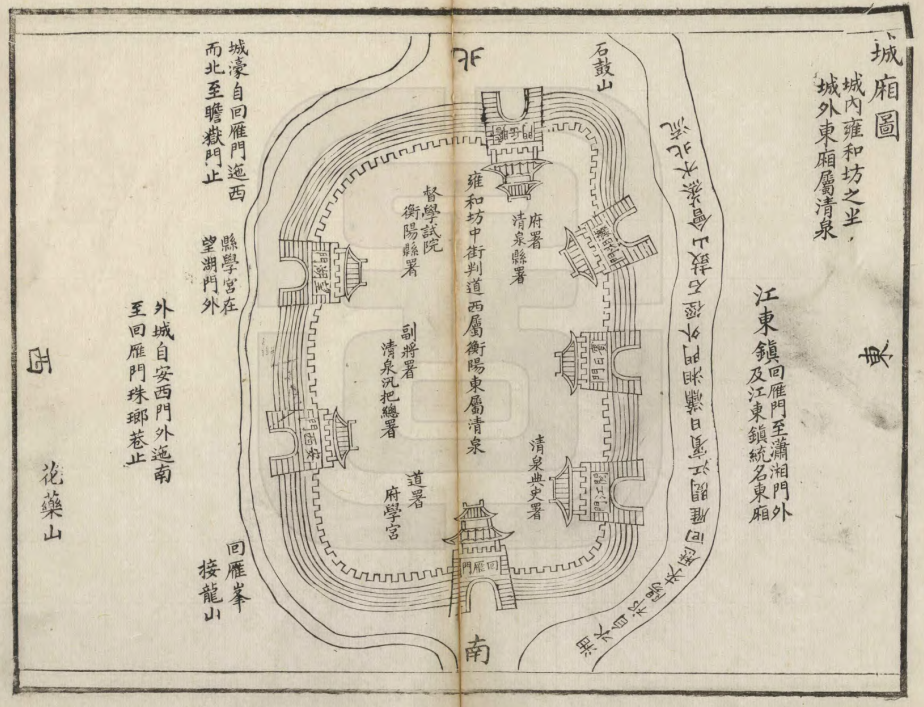 城廂圖
城內雍和坊之
城外東廂屬清泉
東
江東鎮
回雁門至瀟湘門外
及江東鎮統名東廂
湘水自祁陽來歷回雁閱江賓日瀟湘門外逕石鼓山會蒸水北流
石鼓山
北
瞻岳門
瀟湘門
賓日門
閱江門
府署
清泉縣署
清泉典史署
雍和坊中街判道西屬衡陽東屬清泉
回雁門
南
督學試院
衡陽縣署
副將署
清泉汛把總署
道署
府學宮
望湖門
安西門
城濠自回雁門迤西
而北至瞻嶽門止
縣學宮在
望湖門外
回雁峯
接龍山
外城自安西門外迤南
至回雁門珠瑯巷止
花藥山
西